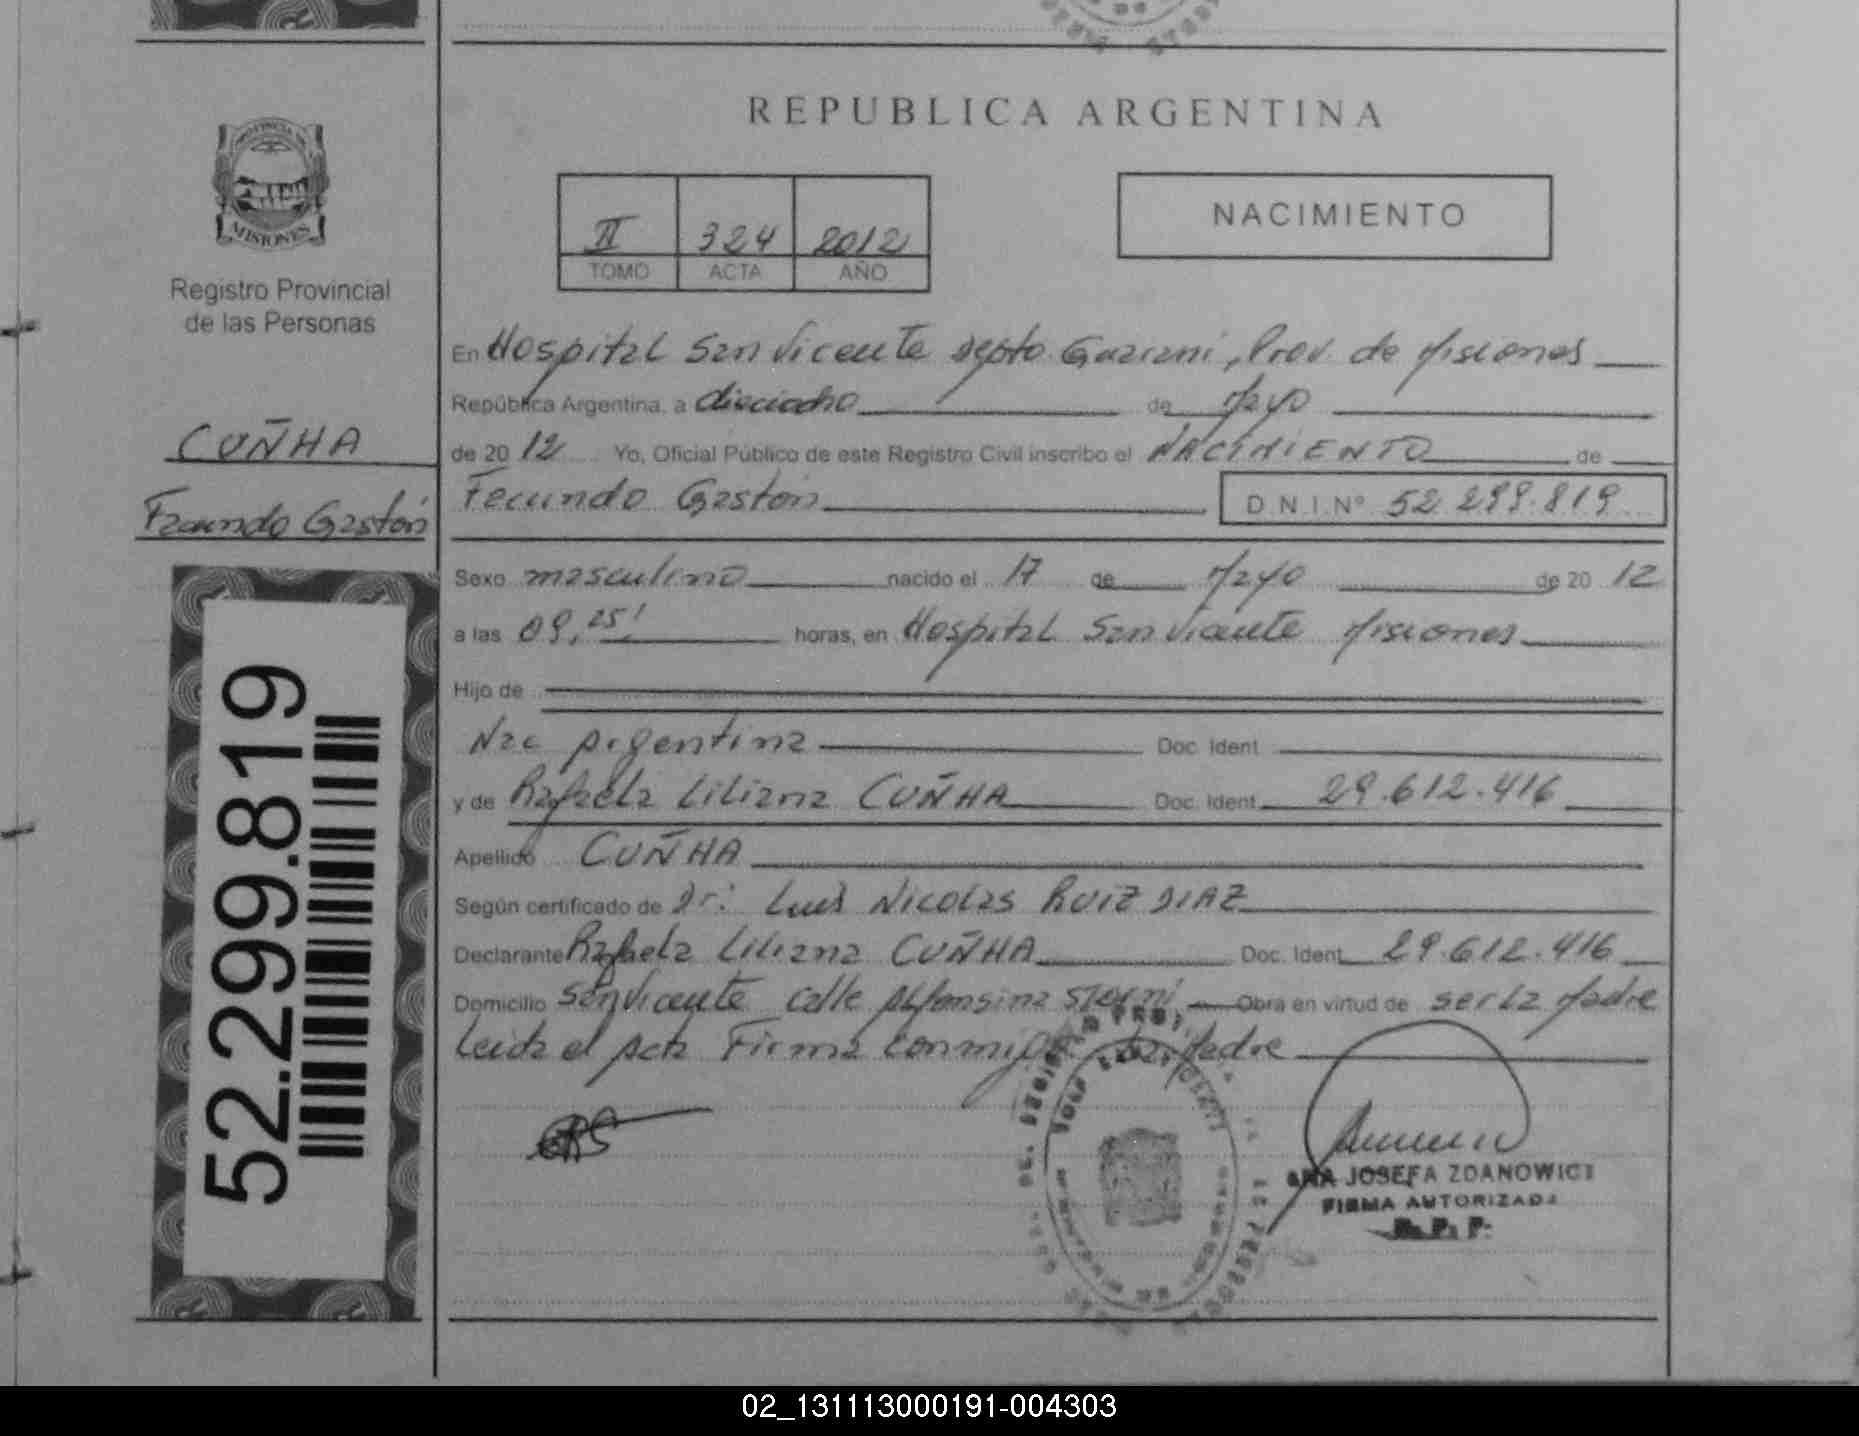 REPUBLICA ARGENTINA
PROVINCIA DE
MISIONES
Registro Provincial
de las Personas
II 324 2012
TOMO ACTA AÑO
NACIMIENTO
En Hospital San Vicente Depto. Guarani, Prov. de Misiones
República Argentina, a dieciocho de Mayo
CUÑHA
de 20 12 Yo, Oficial Público de este Registro Civil inscribo el NACIMIENTO de
Facundo Gastón
Facundo Gastón D.N.I.Nº 52.299.819
Sexo masculino nacido el 17 de Mayo de 20 12
a las 09,25' horas, en Hospital San Vicente Misiones
Hijo de
Nac Argentina Doc. Ident.
y de Rafaela Liliana CUÑHA Doc. Ident. 29.612.416
Apellido CUÑHA
Según certificado de Dr: Luis Nicolas RUIZ DIAZ
Declarante Rafaela Liliana CUÑHA Doc. Ident. 29.612.416
Domicilio San Vicente calle Alfonsina Storni Obra en virtud de ser la Madre
Leida el Acta Firma conmigo la Madre
52.299.819
ANA JOSEFA ZDANOWICZ
FIRMA AUTORIZADA
R. P. P.
02_131113000191-004303